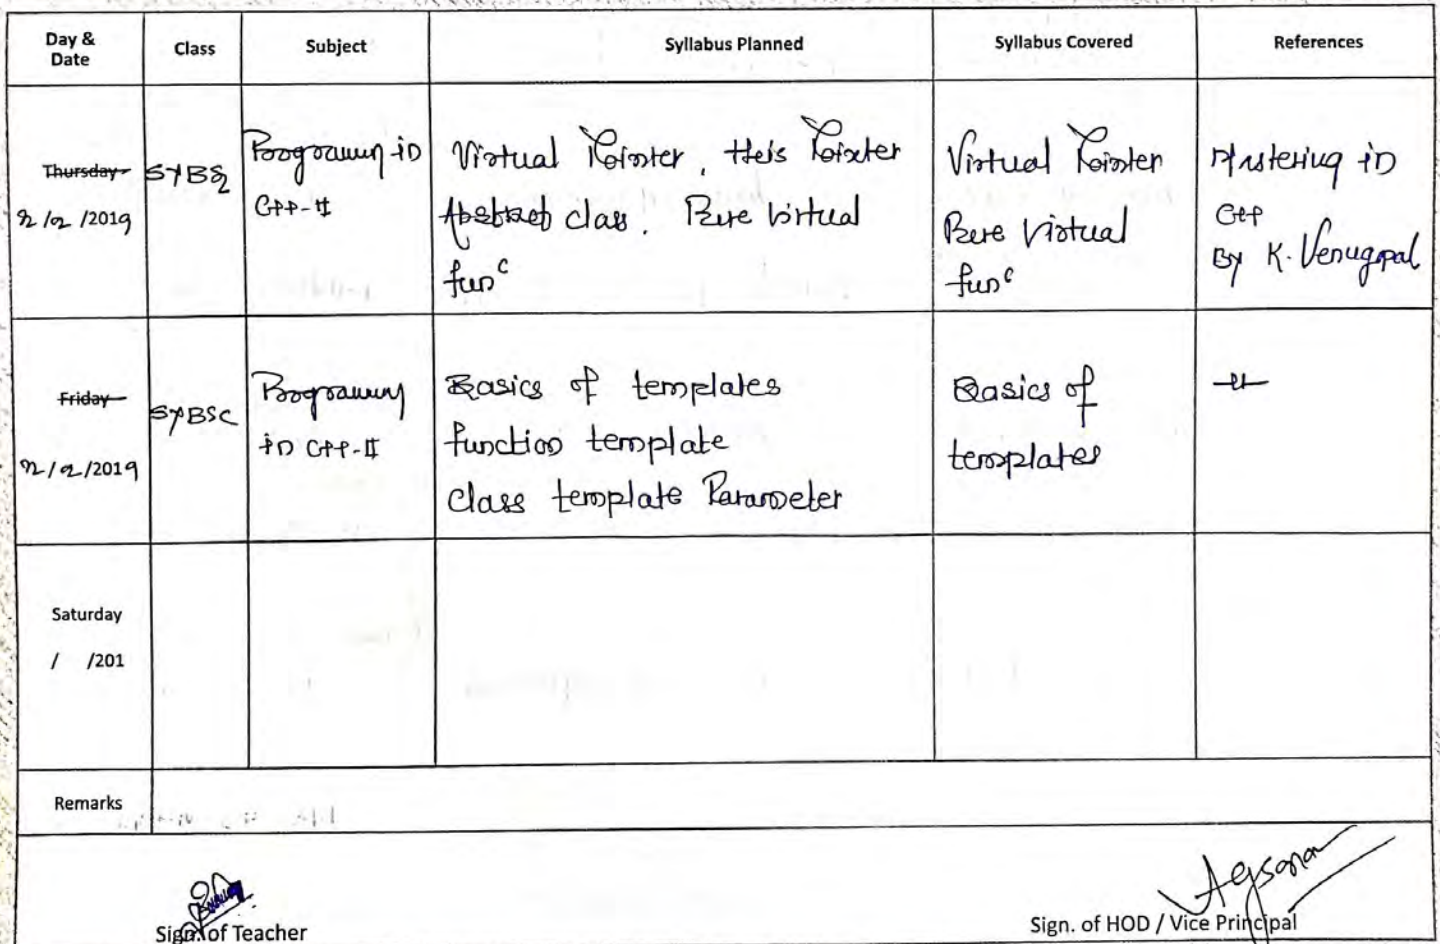 Day & Date Class Subject Syllabus Planned Syllabus Covered References
Thursday
/2019
SYBSc
Programing in
C++-II
Virtual Pointer, this Pointer
Abstract class. Pure Virtual
func
Virtual Pointer
Pure Virtual
func
Mastering in
C++
By K. Venugopal
Friday
/2019
SYBSC
Programing
in C++-II
Basics of templates
function template
Class template Parameter
Basics of
templates
-11-
Saturday
/ /201
Remarks
Sign. of Teacher
Sign. of HOD / Vice Principal